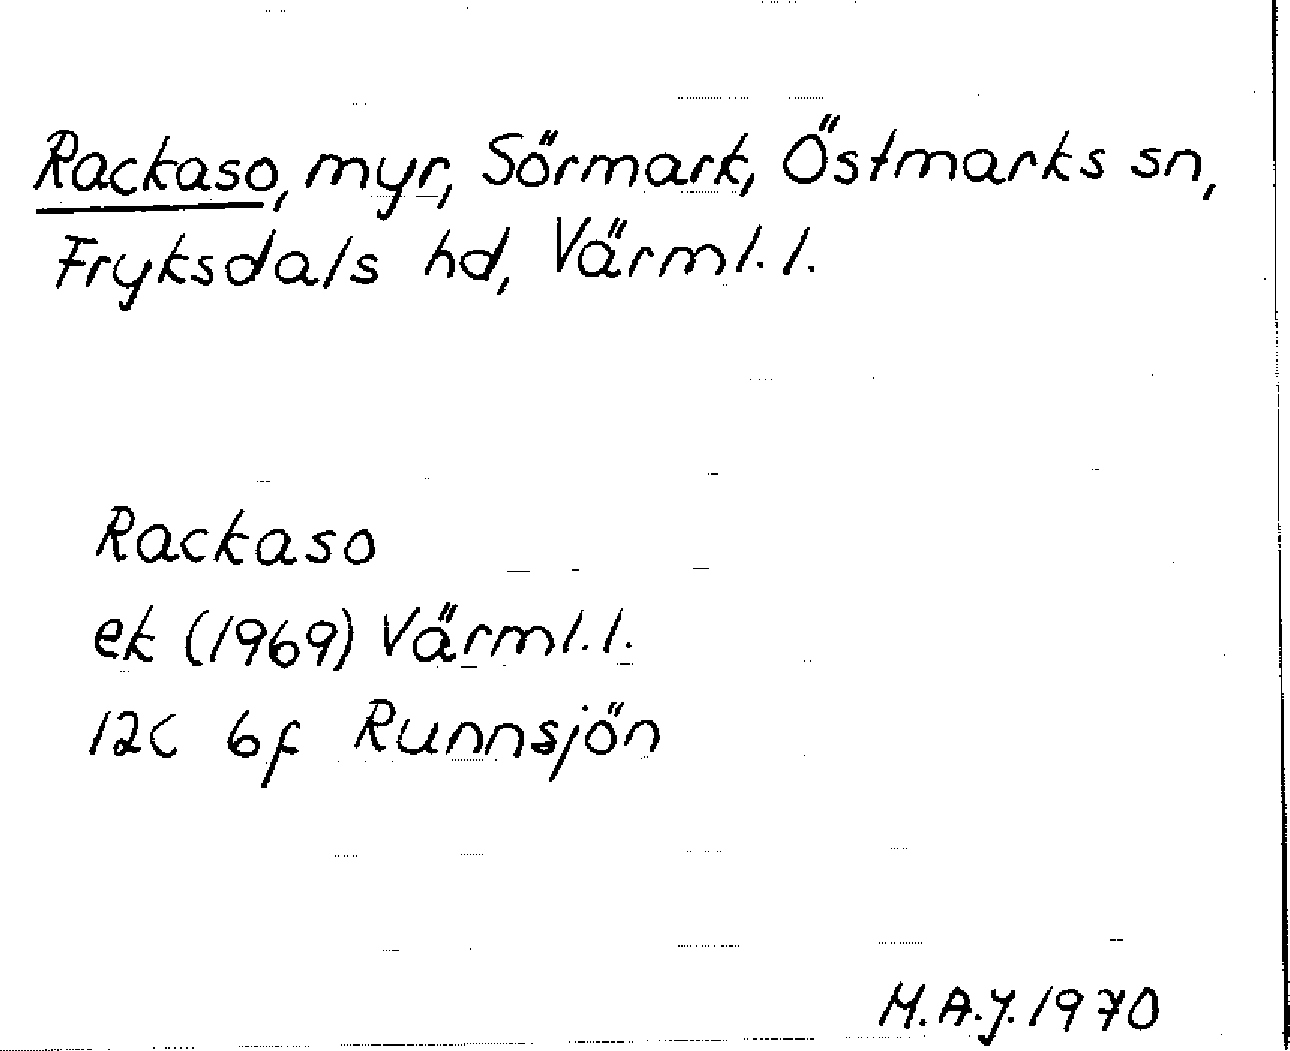 Rackaso, myr, Sörmark, Östmarks sn,
Fryksdals hd, Värml. l.
Rackaso
ek (1969) Värml. l.
12C 6f Runnsjön
M.A.J. 1970